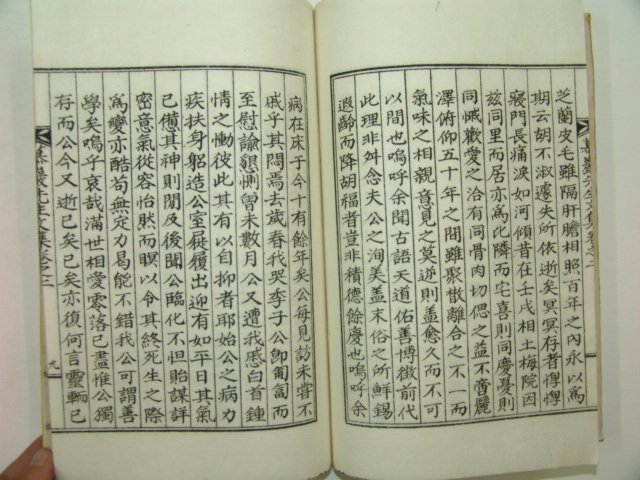 芝蘭皮毛雖隔肝膽相照百年之內永以爲
期云胡不淑遽失所依逝矣冥冥存者惸惸
寢門長痛淚如河傾昔在壬戌相土梅院因
玆同里而居亦爲化隣而宅喜則同慶憂則
同慽歡愛之洽有同骨肉切偲之益不啻麗
澤俯仰五十年之間雖聚散離合之不一而
氣味之相親意見之莫逆則盖愈久而不可
以間也嗚呼余聞古語天道佑善博徵前代
此理非舛念夫公之洵美盖末俗所鮮錫
遐齡而降胡福者豈非積德餘慶也嗚呼余
病在床于今十有餘年矣公每見訪未嘗不
戚乎其悶焉去歲春我哭季子公卽匍匐而
至慰諭懇惻曾未數月公又遭我慽白首鍾
情之慟彼此其有以自抑者耶始公之病力
疾扶身躬造公室屣履出迎有如平日其氣
已憊其神則閒及後聞公臨化不怛貽謀詳
密意氣從容怡然而瞑以令其終死生之際
爲變亦酷苟無定力易能不錯我公可謂善
學矣嗚乎哀哉滿世相愛零落已盡惟公獨
存而公今又逝已矣已矣亦復何言靈輀已
九